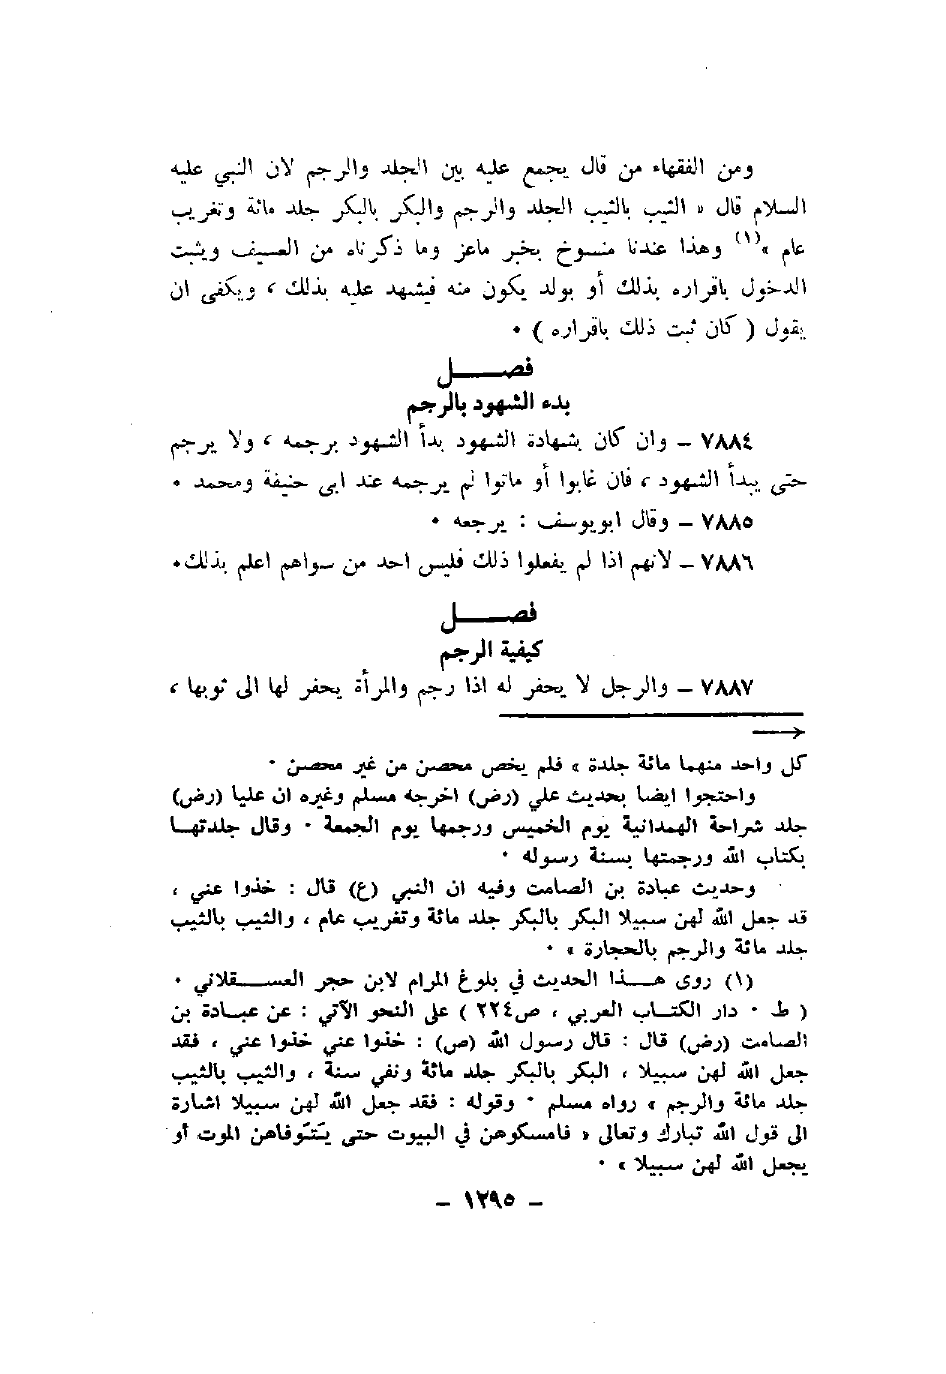 ومن الفقهاء من قال يجمع عليه بين الجلد والرجم لان النبي عليه
السلام قال « الثيب بالثيب الجلد والرجم والبكر بالبكر جلد مائة وتغريب
عام »(١) وهذا عندنا منسوخ بخبر ماعز وما ذكرناه من العسيف ويثبت
الدخول باقراره بذلك أو بولد يكون منه فيشهد عليه بذلك ، ويكفى ان
يقول ( كان ثبت ذلك باقراره ) ٠
فصـــــل
بدء الشهود بالرجم
٧٨٨٤ – وان كان بشهادة الشهود بدأ الشهود برجمه ، ولا يرجم
حتى يبدأ الشهود ، فان غابوا أو ماتوا لم يرجمه عند ابى حنيفة ومحمد ٠
٧٨٨٥ – وقال ابويوسف : يرجعه ٠
٧٨٨٦ – لانهم اذا لم يفعلوا ذلك فليس احد من سواهم اعلم بذلك٠
فصـــــل
كيفية الرجم
٧٨٨٧ – والرجل لا يحفر له اذا رجم والمرأة يحفر لها الى ثوبها ،
كل واحد منهما مائة جلدة » فلم يخص محصن من غير محصن ٠
واحتجوا ايضا بحديث علي (رض) اخرجه مسلم وغيره ان عليا (رض)
جلد شراحة الهمدانية يوم الخميس ورجمها يوم الجمعة ٠ وقال جلدتهـا
بكتاب الله ورجمتها بسنة رسوله ٠
وحديث عبادة بن الصامت وفيه ان النبي (ع) قال : خذوا عني ،
قد جعل الله لهن سبيلا البكر بالبكر جلد مائة وتغريب عام ، والثيب بالثيب
جلد مائة والرجم بالحجارة » ٠
(١) روى هـــذا الحديث في بلوغ المرام لابن حجر العســقلاني ٠
( ط ٠ دار الكتـاب العربي ، ص٢٢٤ ) على النحو الآتي : عن عبـادة بن
الصامت (رض) قال : قال رسول الله (ص) : خذوا عني خذوا عني ، فقد
جعل الله لهن سبيلا ، البكر بالبكر جلد مائة ونفي سنة ، والثيب بالثيب
جلد مائة والرجم » رواه مسلم ٠ وقوله : فقد جعل الله لهن سبيلا اشارة
الى قول الله تبارك وتعالى « فامسكوهن في البيوت حتى يتوفاهن الموت أو
يجعل الله لهن سبيلا » ٠
– ١٢٩٥ –